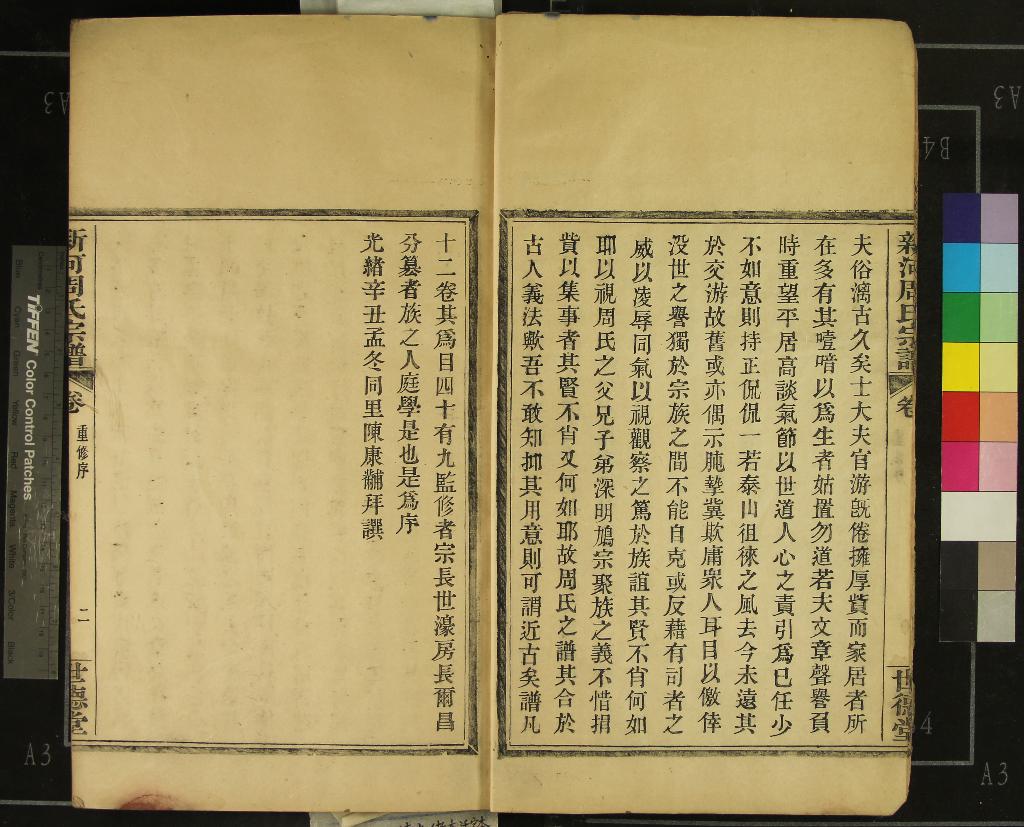 新河周氏宗譜
卷
世德堂
夫俗漓古久矣士大夫官游旣倦擁厚貲而家居者所
在多有其噎喑以爲生者姑置勿道若夫文章聲譽負
時重望平居高談氣節以世道人心之責引爲己任少
不如意則持正侃侃一若泰山徂徠之風去今未遠其
於交游故舊或亦偶示肫摯冀欺庸衆人耳目以儌倖
没世之譽獨於宗族之間不能自克或反藉有司者之
威以凌辱同氣以視觀察之篤於族誼其賢不肖何如
耶以視周氏之父兄子弟深明鳩宗聚族之義不惜捐
貲以集事者其賢不肖又何如耶故周氏之譜其合於
古人義法歟吾不敢知抑其用意則可謂近古矣譜凡
十二卷其爲目四十有九監修者宗長世濠房長爾昌
分纂者族之人庭學是也是爲序
光緒辛丑孟冬同里陳康黼拜譔
新河周氏宗譜
卷
重修序
二
世德堂
TIFFEN Color Control Patches
Blue
Cyan
Green
Yellow
Red
Magenta
White
3/Color
Black
A3
A3
A3
A3
B4
4